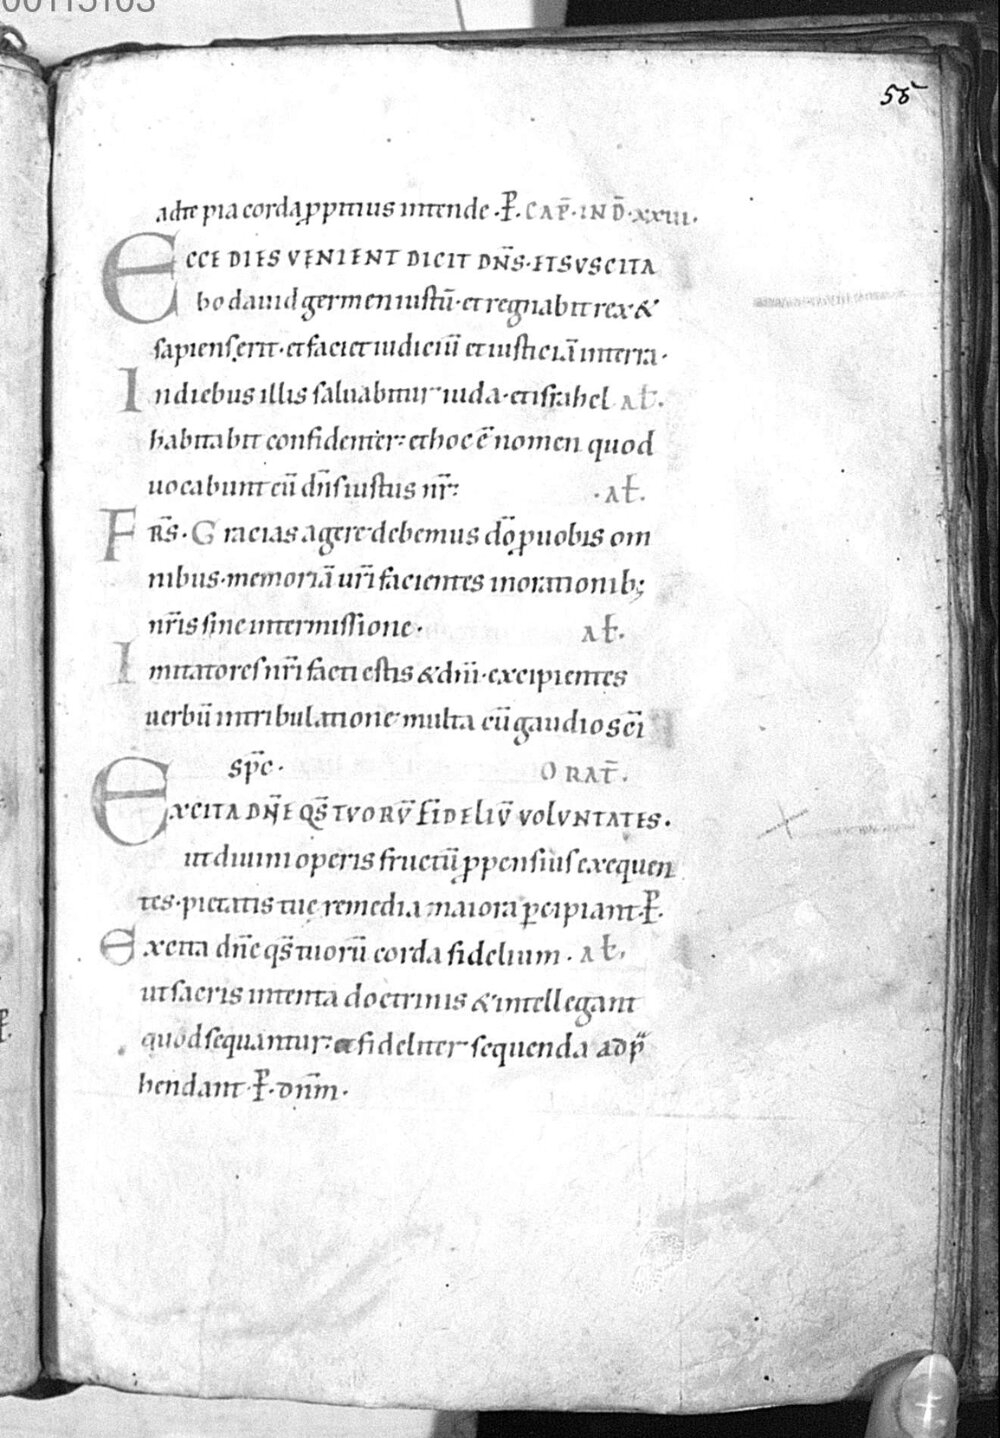 56
ad te pia corda ꝓpitius intende · P̄ · CAP̄ · IN D̄ · XXIII ·
ECCE DIES VENIENT DICIT DN̄S · ET SVSCITA
bo dauid germen iustū · et regnabit rex &
sapiens erit · et faciet iudiciū et iusticiā in terra ·
In diebus illis saluabitur iuda · et israhel at̄ ·
habitabit confidenter : et hoc ē nomen quod
uocabunt eū dn̄s iustus nr̄ : · at̄ ·
FR̄S · Gracias agere debemus dō ꝓ uobis om
nibus · memoriā ur̄i facientes in orationib;
nr̄is sine intermissione · at̄ ·
Imitatores nr̄i facti estis & dn̄i · excipientes
uerbū in tribulatione multa cū gaudio sc̄i
sp̄c · ORAT̄ ·
EXCITA DN̄E QS̄ TVORV̄ FIDELIV̄ VOLVNTATES ·
ut diuini operis fructū ꝓpensius exequen
tes · pietatis tue remedia maiora ꝑcipiant · P̄ ·
Excita dn̄e qs̄ tuorū corda fidelium · at̄ ·
ut sacris intenta doctrinis & intellegant
quod sequantur : et fideliter sequenda adp̄
hendant · P̄ · dn̄m ·